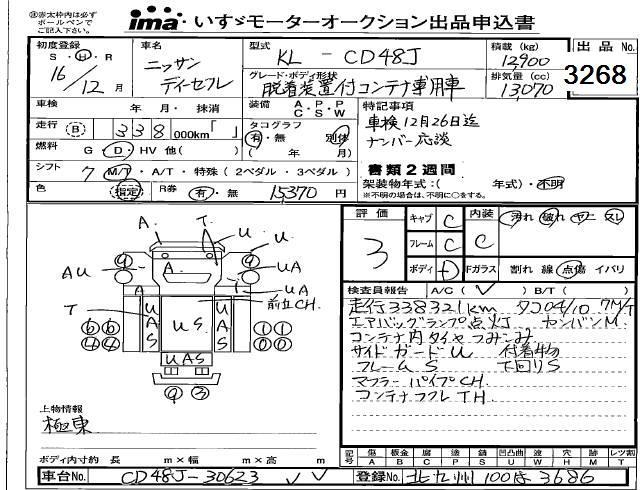 ㊟赤太枠内は必ず
ボールペンで
ご記入下さい。
ima いすゞモーターオークション出品申込書
初度登録
S・H・R
16年12月
車名
ニッサン
ディーゼル
型式
KL - CD48J
積載 (kg)
12900
排気量 (cc)
13070
出品 No.
3268
グレード・ボディ形状
脱着装置付コンテナ専用車
車検 年 月・ 抹消
装備 A・P・P
C・S・W
走行 B 338 000km「 」
タコグラフ
有・無 別体
( 年 月)
特記事項
車検12月26日迄
ナンバー応談
燃料 G・D・HV 他( )
シフト 7 M/T・A/T・特殊 (2ペダル・3ペダル)
書類2週間
架装物年式:( 年式)・不明
※不明の場合は、不明に○をする。
色 指定
R券 有・無 15370 円
A T. U U
A
AU UA
T UAS US UAS 前立CH
UAS
9 3
上物情報
極東
評価
3
キャブ C
フレーム C
ボディ D
内装 C
汚れ 破れ ヤニ スレ
Fガラス 割れ 線 点傷 イバリ
検査員報告 A/C( ✓ ) B/T( )
走行338321km タコ04/10 7M/T
エアバッグランプ点灯 センバンM
コンテナ内タイヤつみこみ
サイドガードU 付着物
フレームS 下回りS
マフラーパイプCH
コンテナフレTH
ボディ内寸約 長 m×幅 m×高 m
記号 傷 板金 腐 塗 錆 凹凸曲 波 穴 跡 レツ割
A B C P S U W H M T
車台No. CD48J-30623
登録No. 北九州 100 は 3686